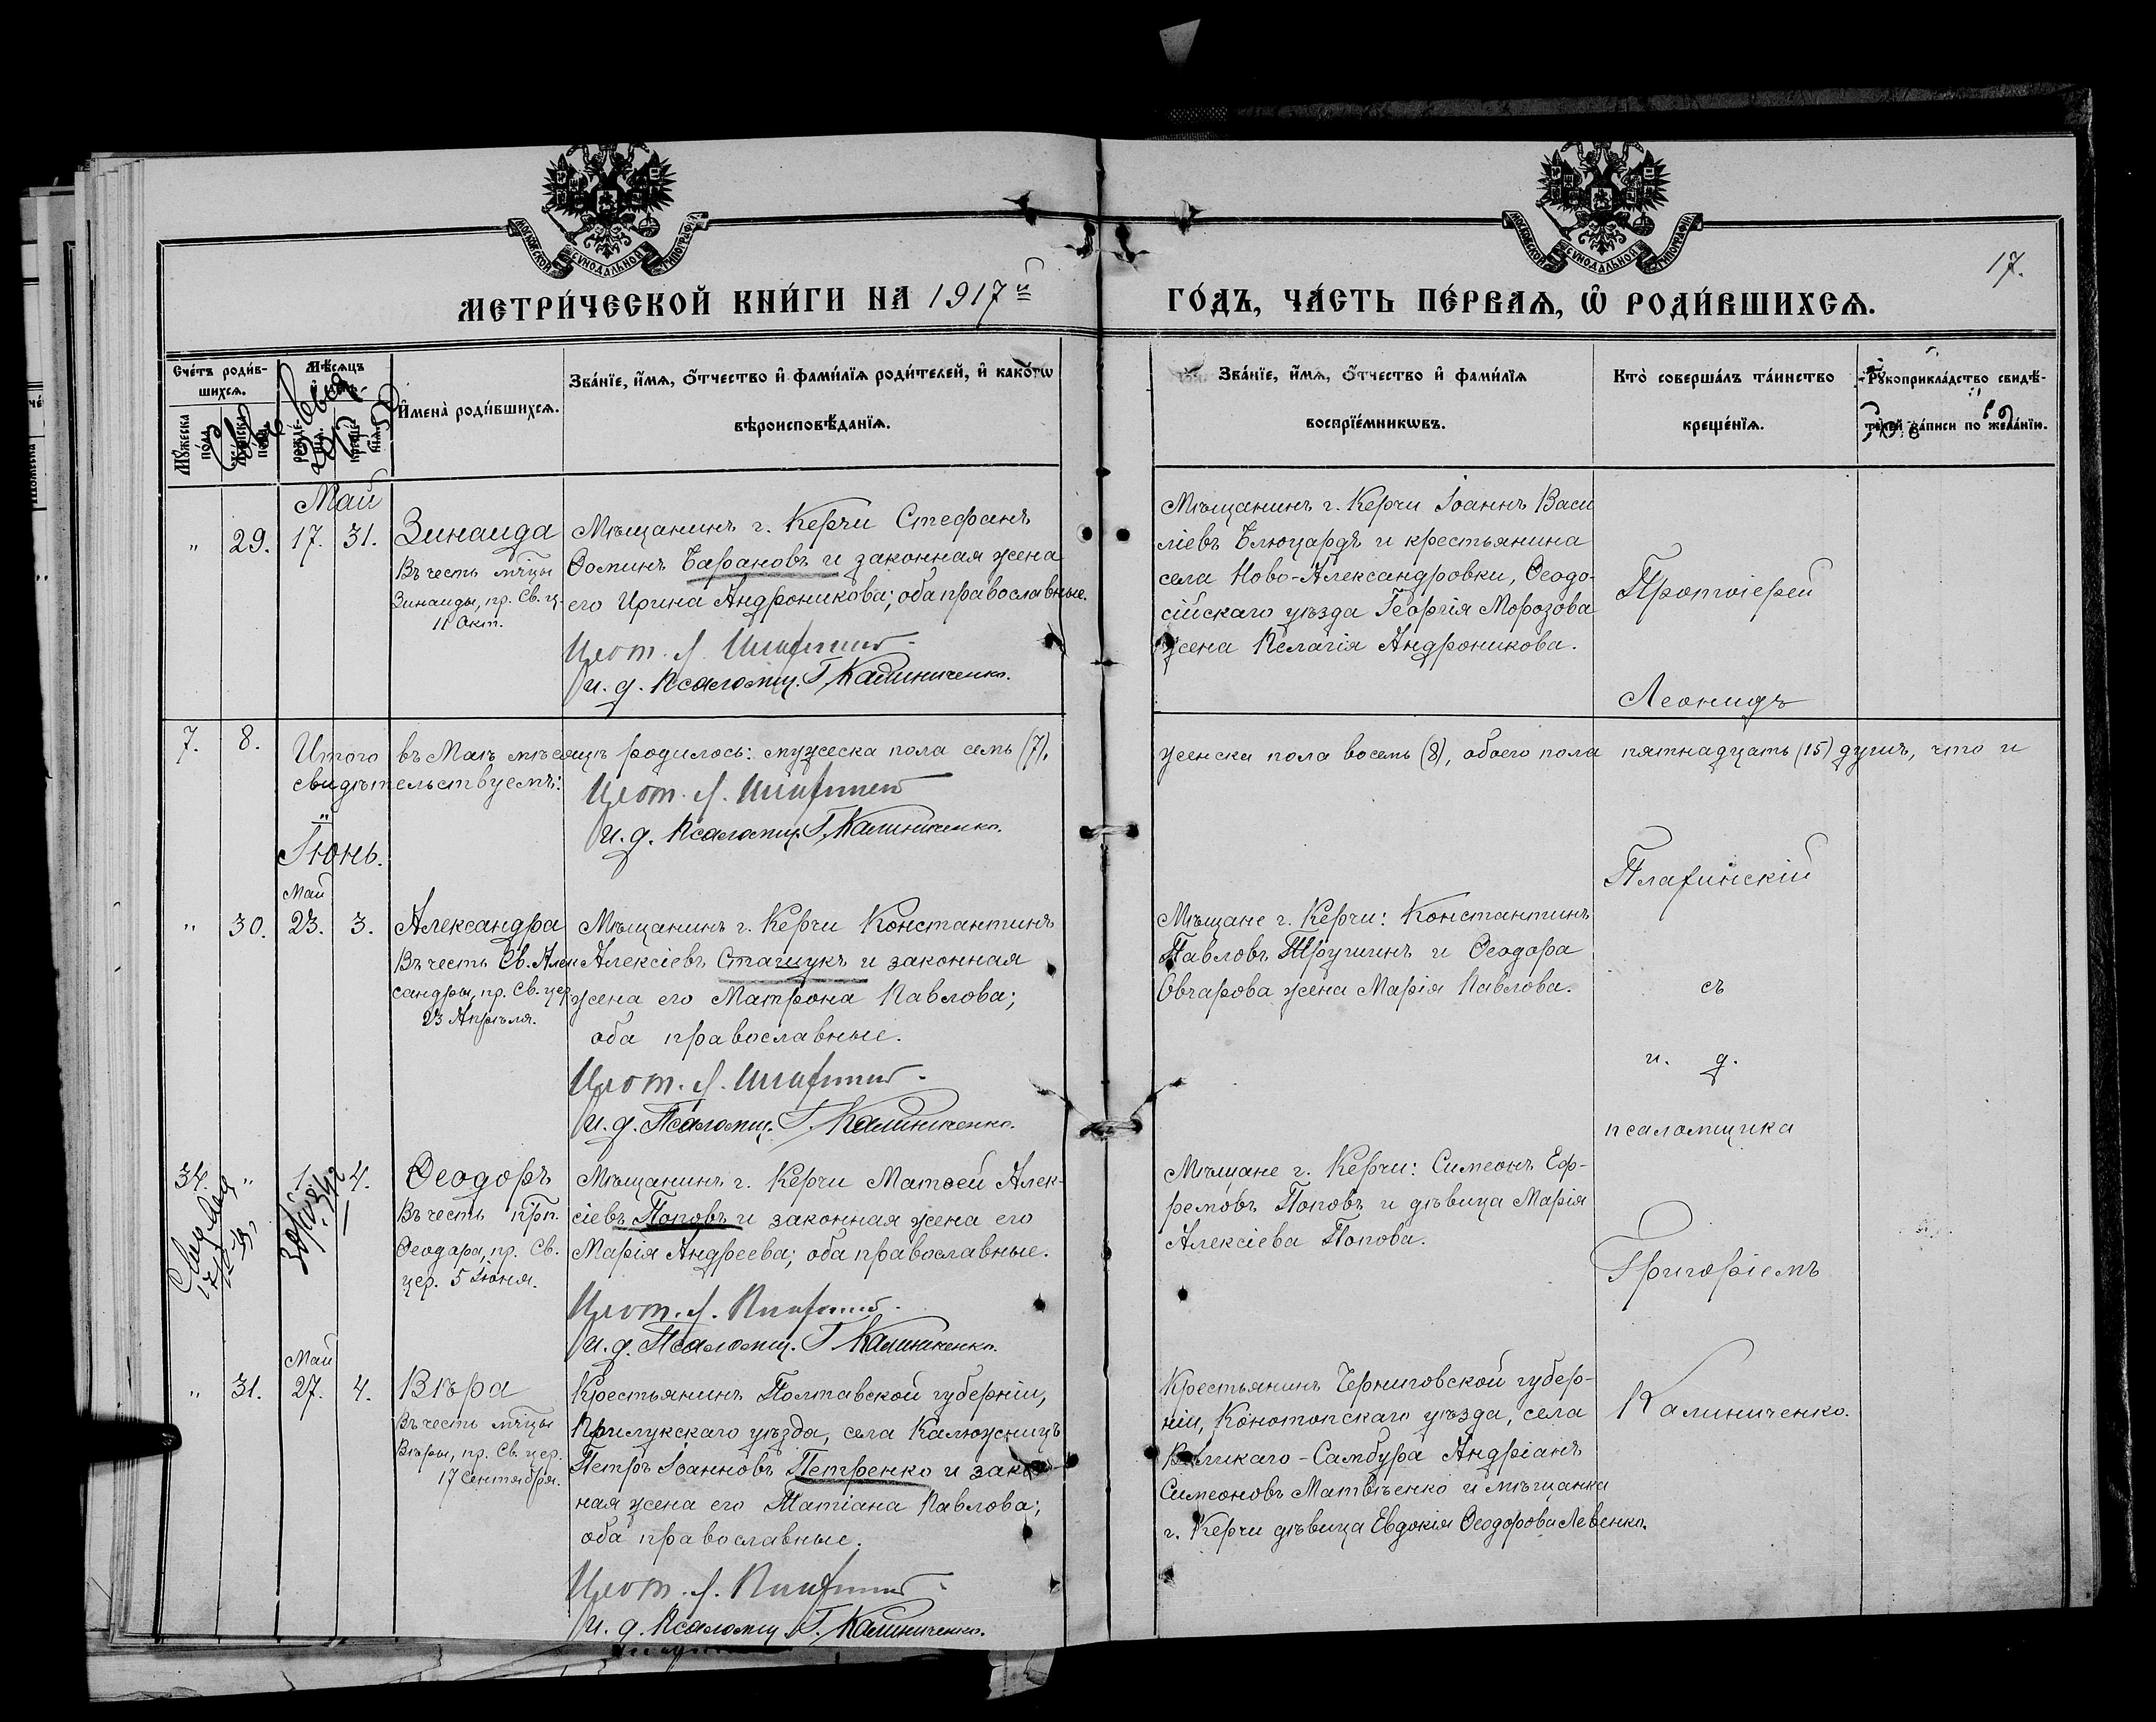 МОСКОВСКОЙ СѴНОДАЛЬНОЙ ТИПОГРАФІИ
МОСКОВСКОЙ СѴНОДАЛЬНОЙ ТИПОГРАФІИ
17.
МЕТРИ́ЧЕСКОЙ КНИ́ГИ НА 1917й
ГО́ДЪ, ЧА́СТЬ ПЕ́РВАѦ, Ѡ҆ РОДИ́ВШИХСѦ.
Сче́тъ роди́в-
шихсѧ.
Мѣ́сѧцъ
И҆мена̀ роди́вшихсѧ.
Зва́нїе, и҆́мѧ, ѻ҆́тчество и҆ фами́лїѧ роди́телей, и҆ како́гѡ
вѣроисповѣ́данїѧ.
Зва́нїе, и҆́мѧ, ѻ҆́тчество и҆ фами́лїѧ
воспрїе́мникѡвъ.
Кто̀ соверша́лъ та́инство
креще́нїѧ.
Рꙋкоприкла́дство свидѣ́-
те́лей за́писи по жела́нїю.
Май
" 29. 17. 31. Зинаида
Въ честь мч̃цы
Зинаиды, пр. Св. ц.
11 Окт.
Мѣщанинъ г. Керчи Стефанъ
Ѳоминъ Барановъ и законная жена
его Ирина Андроникова; оба православные.
Прот. Л.
И. д. Псаломщ. Г. Калиниченко.
Мѣщанинъ г. Керчи Іоаннъ Васи
ліевъ Блюцардъ и крестьянина
села Ново-Александровки, Ѳеодо-
сійскаго уѣзда Георгія Морозова
жена Пелагія Андроникова.
Протоіерей
Леонидъ
7. 8. Итого въ Маѣ мѣсяцѣ родилось: мужеска пола семь (7), женска пола восемь (8), обоего пола пятнадцать (15) душъ, что и
свидѣтельствуемъ:
Прот. Л.
И. д. Псаломщ. Г. Калиниченко.
Іюнь.
Май
" 30. 23. 3. Александра
Въ честь Св. Алек
сандры, пр. Св. цер.
23 Апрѣля.
Мѣщанинъ г. Керчи Константинъ
Алексіевъ Сташукъ и законная
жена его Матрона Павлова;
оба православные.
Прот. Л.
И. д. Псаломщ. Г. Калиниченко.
Мѣщане г. Керчи: Константинъ
Павловъ Трушинъ и Ѳеодора
Овчарова жена Марія Павлова.
Плафинскій
съ
и. д.
псаломщика
34. " 1. 4. Ѳеодоръ
Въ честь прп.
Ѳеодора, пр. Св.
цер. 5 Іюня.
Мѣщанинъ г. Керчи Матѳей Алек-
сіевъ Поповъ и законная жена его
Марія Андреева; оба православные.
Прот. Л.
И. д. Псаломщ. Г. Калиниченко.
Мѣщане г. Керчи: Симеонъ Еф-
ремовъ Поповъ и дѣвица Марія
Алексіева Попова.
Григоріемъ
Май
" 31. 27. 4. Вѣра
Въ честь мч̃цы
Вѣры, пр. Св. цер.
17 Сентября.
Крестьянинъ Полтавской губерніи,
Прилукскаго уѣзда, села Калюжницъ
Петръ Іоанновъ Петренко и закон
ная жена его Татіана Павлова;
оба православные.
Прот. Л.
И. д. Псаломщ. Г. Калиниченко.
Крестьянинъ Черниговской губер-
ніи, Конотопскаго уѣзда, села
Великаго-Самбура Андріанъ
Симеоновъ Матвѣенко и мѣщанка
г. Керчи дѣвица Евдокія Ѳеодорова Левенко.
Калиниченко.